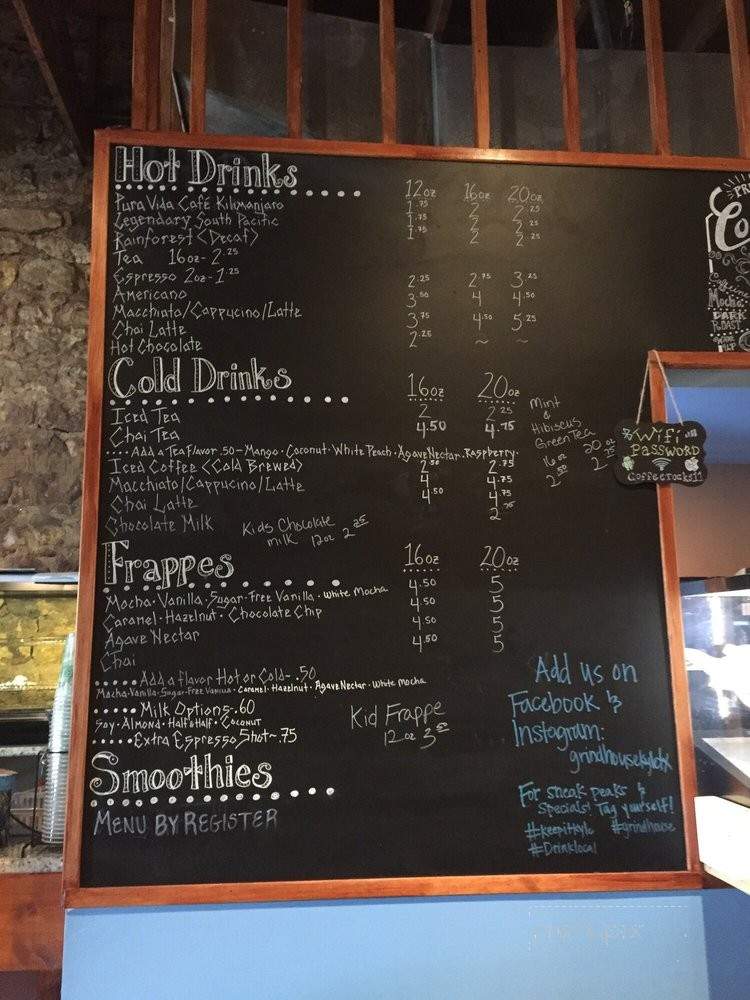 Hot Drinks
12oz 16oz 20oz
Pura Vida Café Kilimanjaro 1.75 2 2.25
Legendary South Pacific 1.75 2 2.25
Rainforest <Decaf> 1.75 2 2.25
Tea 16oz- 2.25
Espresso 2oz-1.25
Americano 2.25 2.75 3.25
Macchiato/Cappucino/Latte 3.50 4 4.50
Chai Latte 3.75 4.50 5.25
Hot Chocolate 2.25 ~ ~
Cold Drinks
16oz 20oz
Iced Tea 2 2.25
Chai Tea 4.50 4.75
Add a Tea Flavor .50-Mango·Coconut·White Peach·Agave Nectar·Raspberry
Iced Coffee <Cold Brewed> 2.50 2.75
Macchiato/Cappucino/Latte 4 4.75
Chai Latte 4.50 4.75
Chocolate Milk 2.75
Kids Chocolate
milk 12oz 2.25
Mint
&
Hibiscus
Green Tea
16oz 20oz
2.50 2.75
Frappes
16oz 20oz
Mocha·Vanilla·Sugar-Free Vanilla·White Mocha 4.50 5
Caramel·Hazelnut·Chocolate Chip 4.50 5
Agave Nectar 4.50 5
Chai 4.50 5
Add a flavor Hot or Cold- .50
Mocha·Vanilla·Sugar-Free Vanilla·Caramel·Hazelnut·Agave Nectar·White Mocha
Milk Options-.60
Soy·Almond·Half&Half·Coconut
Extra Espresso Shot~.75
Kid Frappe
12oz
Smoothies
MENU BY REGISTER
Wifi
PASSWORD
Coffeerocks11
Mocha
DARK
ROAST
Add us on
Facebook &
Instagram:
grindhousekyletx
For sneak peaks &
specials! Tag yourself!
#keepitkyle #grindhouse
#Drinklocal